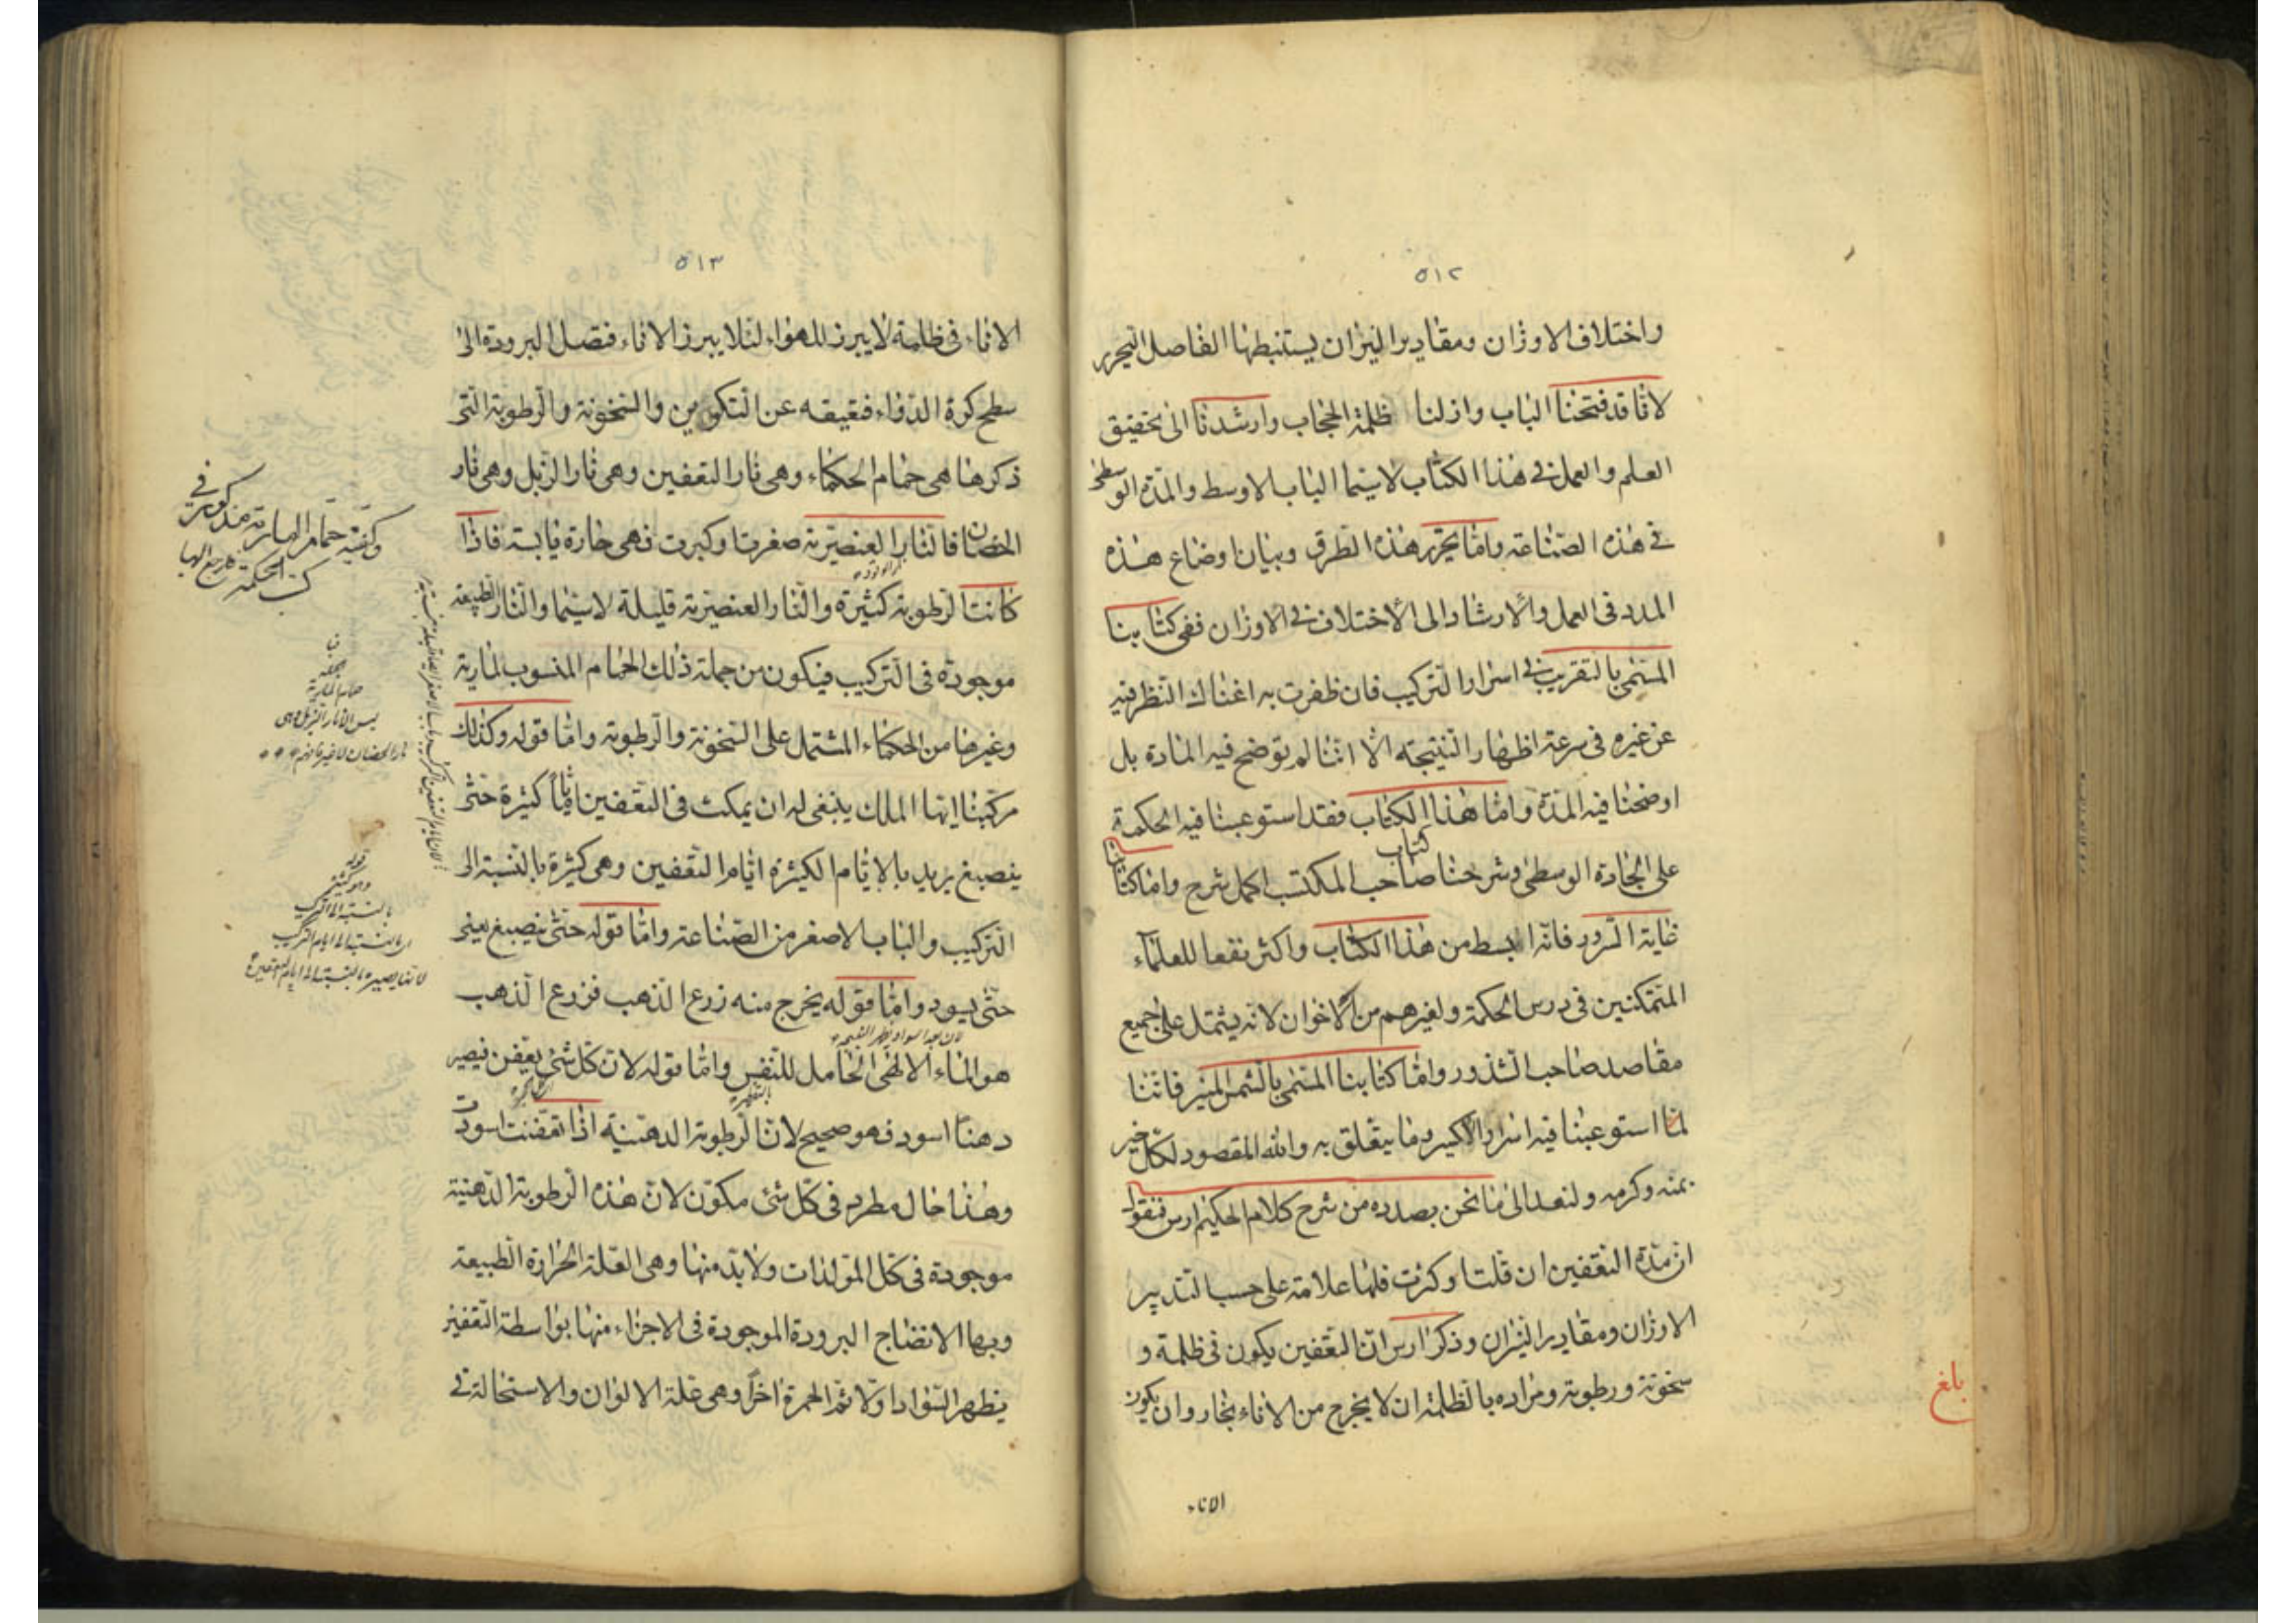 ٥١٢
واختلاف الاوزان ومقادير النيران يستنبطها الفاضل النحرير
لانا قد فتحنا الباب وازلنا ظلمة الحجاب وارشدنا الى تحقيق
العلم والعمل في هذا الكتاب لاسيما الباب الاوسط والمدة الوسطى
في هذه الصناعة واما تحرير هذه الطرق وبيان اوضاع هذه
المدد فى العمل والارشاد الى الاختلاف في الاوزان ففى كتابنا
المسمى بالتقريب في اسرار التركيب فان ظفرت به اغناك النظر فيه
عن غيره فى سرعة اظهار النتيجة الا اننا لم نوضح فيه المادة بل
اوضحنا فيه المدة واما هذا الكتاب فقد استوعبنا فيه الحكمة
على الجادة الوسطى وشرحنا كتاب صاحب المكتسب اكمل شرح واما كتابنا
غاية السرور فانه ابسط من هذا الكتاب واكثر نفعا للعلماء
المتمكنين فى درس الحكمة ولغيرهم من الاخوان لانه يشتمل على جميع
مقاصد صاحب الشذور واما كتابنا المسمى بالشمس المنير فاننا
لما استوعبنا فيه اسرار الاكسير وما يتعلق به والله المقصود لكل خير
بمنه وكرمه ولنعد الى ما نحن بصدده من شرح كلام الحكيم ارس فنقول
ان مدة التعفين ان قلت او كثرت فلها علامة على حسب التدبير
الاوزان ومقادير النيران وذكر ارس ان التعفين يكون فى ظلمة و
سخونة ورطوبة ومراده بالظلمة ان لا يخرج من الاناء بخار وان يكون
الاناء
بلغ
٥١٣
الاناء فى ظلمة لا يبرز للهواء لئلا يبرز الاناء فتصل البرودة الى
سطح كرة الدواء فتعيقه عن التكوين والسخونة والرطوبة التى
ذكرها هى حمام الحكماء وهى نار التعفين وهى نار الزبل وهى نار
الحضان فالنار العنصرية صغرت او كبرت فهى حارة يابسة فاذا
كانت الرطوبة كثيرة والنار العنصرية قليلة لاسيما والنار الطبيعة
موجودة فى التركيب فيكون من جملة ذلك الحمام المنسوب لمارية
وغيرها من الحكماء المشتمل على السخونة والرطوبة واما قوله وكذلك
مركبنا ايها الملك ينبغى له ان يمكث فى التعفين اياماً كثيرة حتى
ينصبغ يريد بالايام الكثيرة ايام التعفين وهى كثيرة بالنسبة الى
التركيب والباب الاصغر من الصناعة واما قوله حتى ينصبغ يعنى
حتى يسود واما قوله يخرج منه زرع الذهب فزرع الذهب
هو الماء الالهى الحامل للنفس واما قوله لان كل شئ يعفن فيصير
دهناً اسود فهو صحيح لان الرطوبة الدهنية اذا تعفنت اسودت
وهذا حال مطرد فى كل شئ مكون لان هذه الرطوبة الدهنية
موجودة فى كل المولدات ولابد منها وهى العلة الحرارة الطبيعة
وبها الانضاج البرودة الموجودة فى الاجزاء منها بواسطة التعفين
يظهر السواد اولا ثم الحمرة اخراً وهى علة الالوان والاستحالة في
وكيفية حمام المارية مذكورة في
كتب الحكمة فارجع اليها
حمام المارية
ليس الا نار الزبل وهى
نار الحضان لا غير فافهم
قوله
وهى كثيرة
بالنسبة الى التركيب
اى بالنسبة الى ايام التركيب